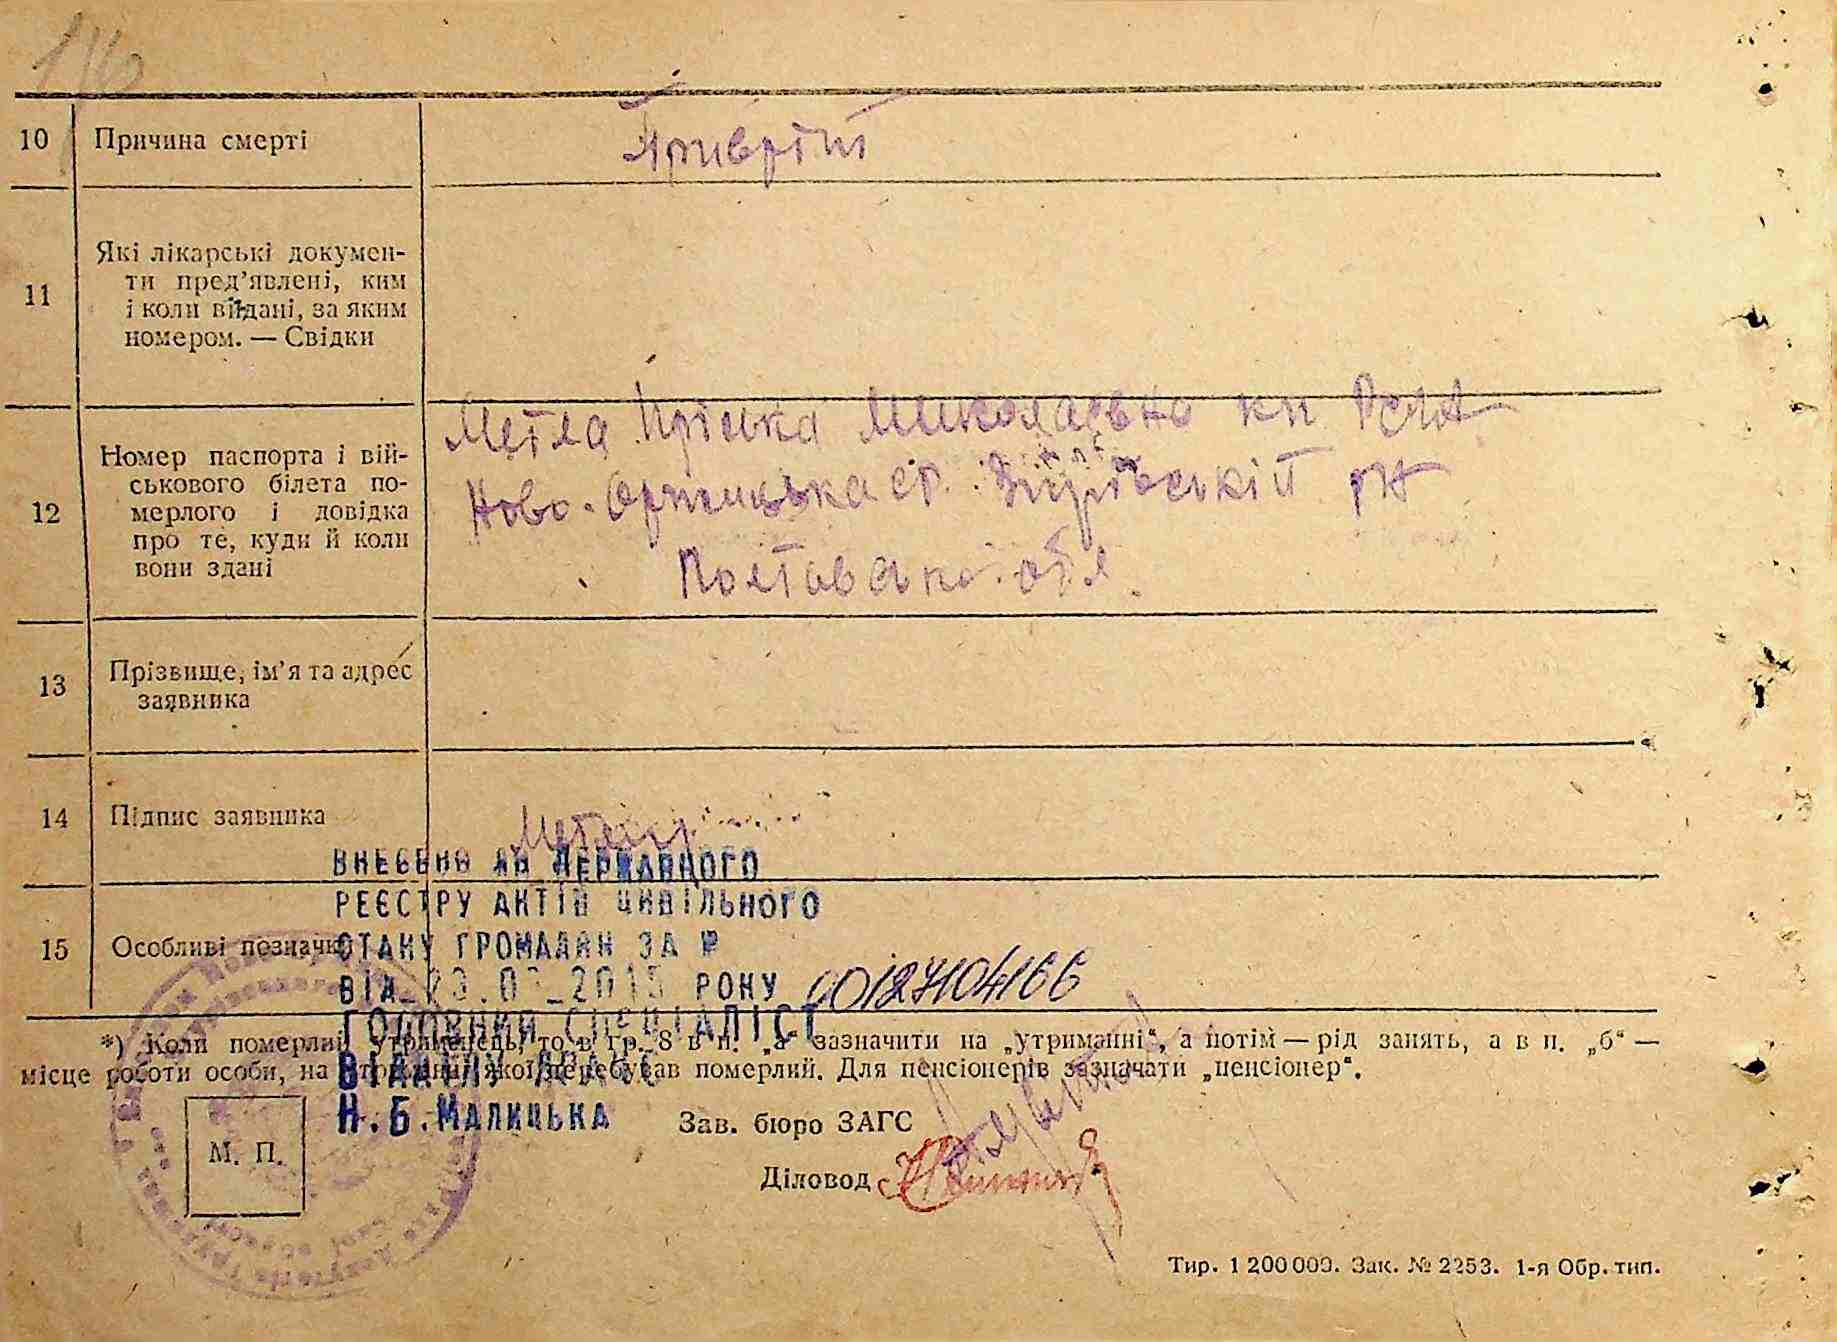 10 Причина смерті
11 Які лікарські докумен-
ти пред’явлені, ким
і коли видані, за яким
номером. — Свідки
12 Номер паспорта і вій-
ськового білета по-
мерлого і довідка
про те, куди й коли
вони здані
Метла Прiська Миколаевна кп
Ново-Оржицька рн
Полтавська обл.
13 Прізвище, ім’я та адрес
заявника
14 Підпис заявника
15 Особливі позначки
ВНЕСЕНО ДО ДЕРЖАВНОГО
РЕЄСТРУ АКТІВ ЦИВІЛЬНОГО
СТАНУ ГРОМАДЯН ЗА №
ВІД 2015 РОКУ 00127104166
ГОЛОВНИЙ СПЕЦІАЛІСТ
ВІДДІЛУ ДРАЦС
Н.Б.МАЛИЦЬКА
*) Коли померлий утриманець, то в гр. 8 в п. „а“ зазначити на „утриманні“, а потім — рід занять, а в п. „б“ —
місце роботи особи, на утриманні якої перебував померлий. Для пенсіонерів зазначати „пенсіонер“.
М. П.
Зав. бюро ЗАГС
Діловод
Тир. 1 200 000. Зак. № 2253. 1-я Обр. тип.